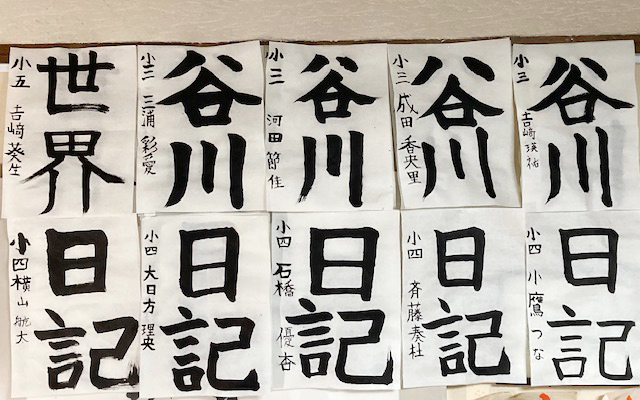 世界
小五 吉﨑葵生
谷川
小三 三浦彩愛
谷川
小三 河田節佳
谷川
小三 成田香央里
谷川
小三 吉﨑瑛祐
日記
小四 横山航大
日記
小四 大日方理央
日記
小四 石橋優杏
日記
小四 斉藤奏杜
日記
小四 小鷹つな